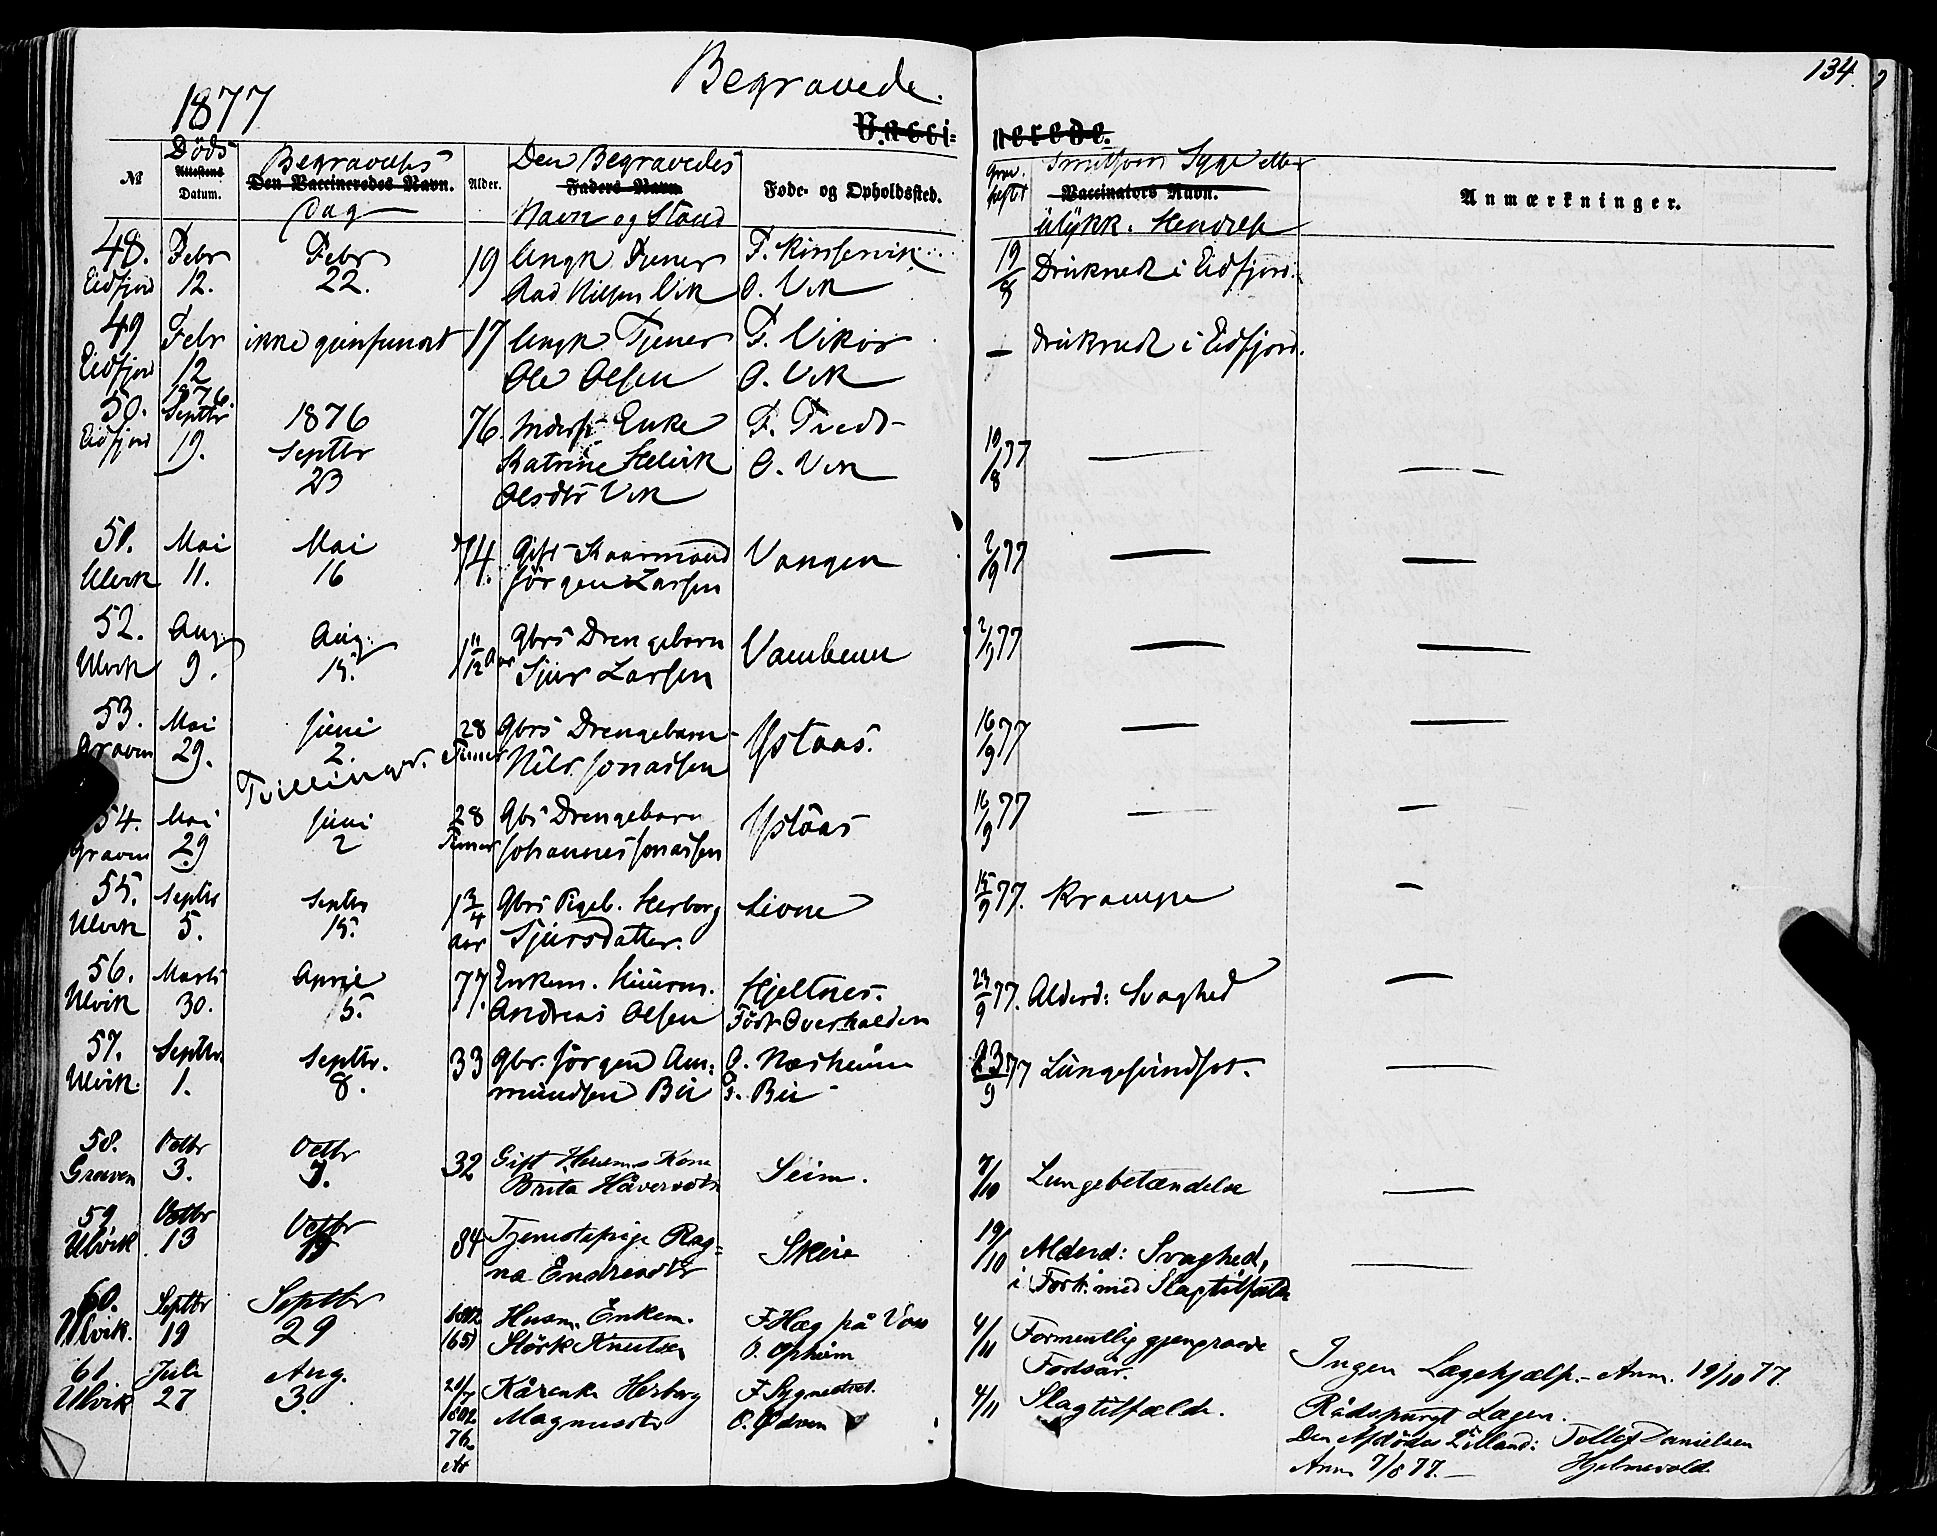 134.
1877
Begravede.
Vacci-
nerede.
№
Døds
Attestens
Datum.
Begravelses
Den Vaccineredes Navn.
Dag
Alder.
Den Begravedes
Faders Navn
Navn og Stand
Føde- og Opholdssted.
Smitsom Syge eller
Vaccinators Navn.
Ulykk. Hendelse
Anmærkninger.
48. Febr Febr 19 Ungk. Tjener F. Kinservik 19 Druknet i Eidfjord.
Eidfjord 12. 22. Aad Nilsen Vik O. Vik
49 Febr ikke gjenfundet 17 Ungk Tjener F. Vikør — druknet i Eidfjord.
Eidfjord 12 Ole Olsen O. Vik
50. 1876. Septbr 1876 76. Inderst Enke
Eidfjord 19. Septbr Katrine O. Vik 19/8 77 — —
23 Olsdtr Vik
51. Mai Mai 74. Gift Kaarmand Vangen 2/9 77 — —
Ulvik 11. 16 Jörgen Larsen
52. Aug. Aug. 1 11/12 Aar Gbrs Drengebarn 2/9 77 — —
Ulvik 9. 15. Sjur Larsen
53. Mai Juni 28 Gbrs Drengebarn Ystaas. 16/9 77 — —
Graven 29. 2. Timer Nils Jonassen
Tvillinger.
54. Mai Juni 28 Gbs Drengebarn Ystaas 16/9 77 — —
Graven 29 2 Timer Johannes Jonassen
55. Septbr Septbr 1 3/4 Gbrs Pigeb. Herborg Lione 15/9 77. Krampe —
Ulvik 5. 15. Aar Sjursdatter.
56. Marts April 77. Enkem. Huusm. Hjeltnes. 23/9 77. Alderd: Svaghed —
Ulvik 30. 5. Andreas Olsen Födt Overhalden
57. Septbr. Septbr. 33 Gbr. Jörgen Am- O. Næsheim 23/9 77 Lungesvindsot. —
Ulvik. 1. 8. mundsen Bu F. Bu
58. Octbr Octbr 32 Gift Husm. Kone Seim. 7/10 Lungebetændelse —
Graven 3. 7. Brita Håversdtr
59 Octbr Octbr 84 Tjenestepige Rag- Skeie 19/10 Alderd: Svaghed, —
Ulvik. 13 19 na Endresdtr i Forb. med Slagtilfælde
60. Septbr Septbr 1802 Husm. Enkem. F Hæg på Voss 4/11 Formentlig gjengroede
Ulvik. 19 29 Störk Knutsen O. Opheim Fodsår. Ingen Lægehjælp. - Anm. 19/10 77.
61. Juli Aug. Kårenke Herborg 4/11 Slagtilfælde. Rådspurgt Lægen.
Ulvik 27 3. 1802 Magnusdtr O. Ødven Den Afdödes Tollef Danielsen
76 Anm 7/8 77. — Hjelmevold
år